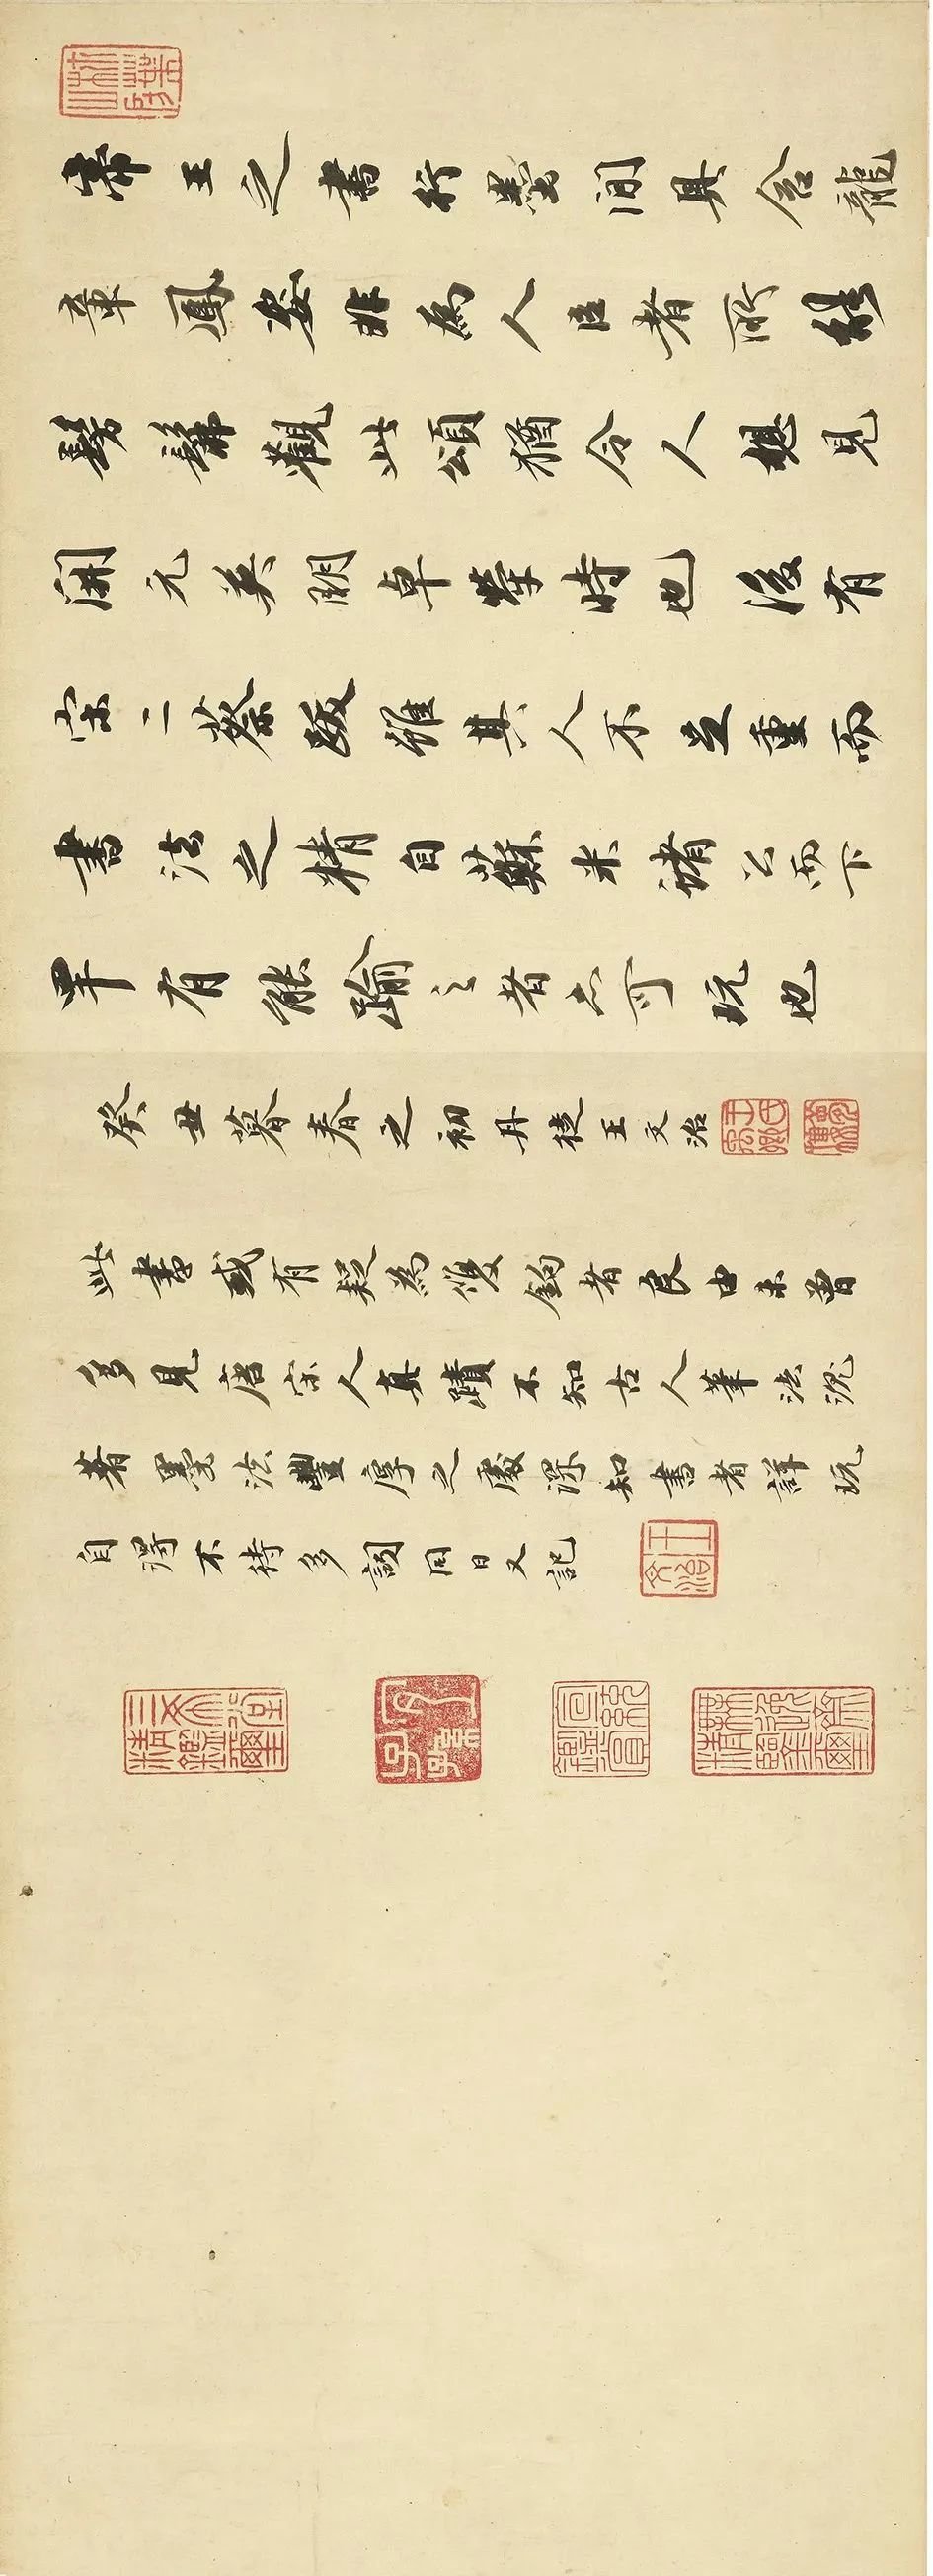 帝王之書行墨間具含龍
章鳳姿非為人臣者所能
髣髴觀此頌猶令人想見
開元英明卓犖時也後有
宋二蔡跋雖其人不足重而
書法之精自蘇米諸公而下
罕有能踰之者亦可玩也
癸丑暮春之初丹徒王文治
此書或有疑為雙鉤者良由未曾
多見唐宋人真蹟不知古人筆法沉
著墨法豐厚之處深知書者詳玩
自得不待多詞同日又記
王文治